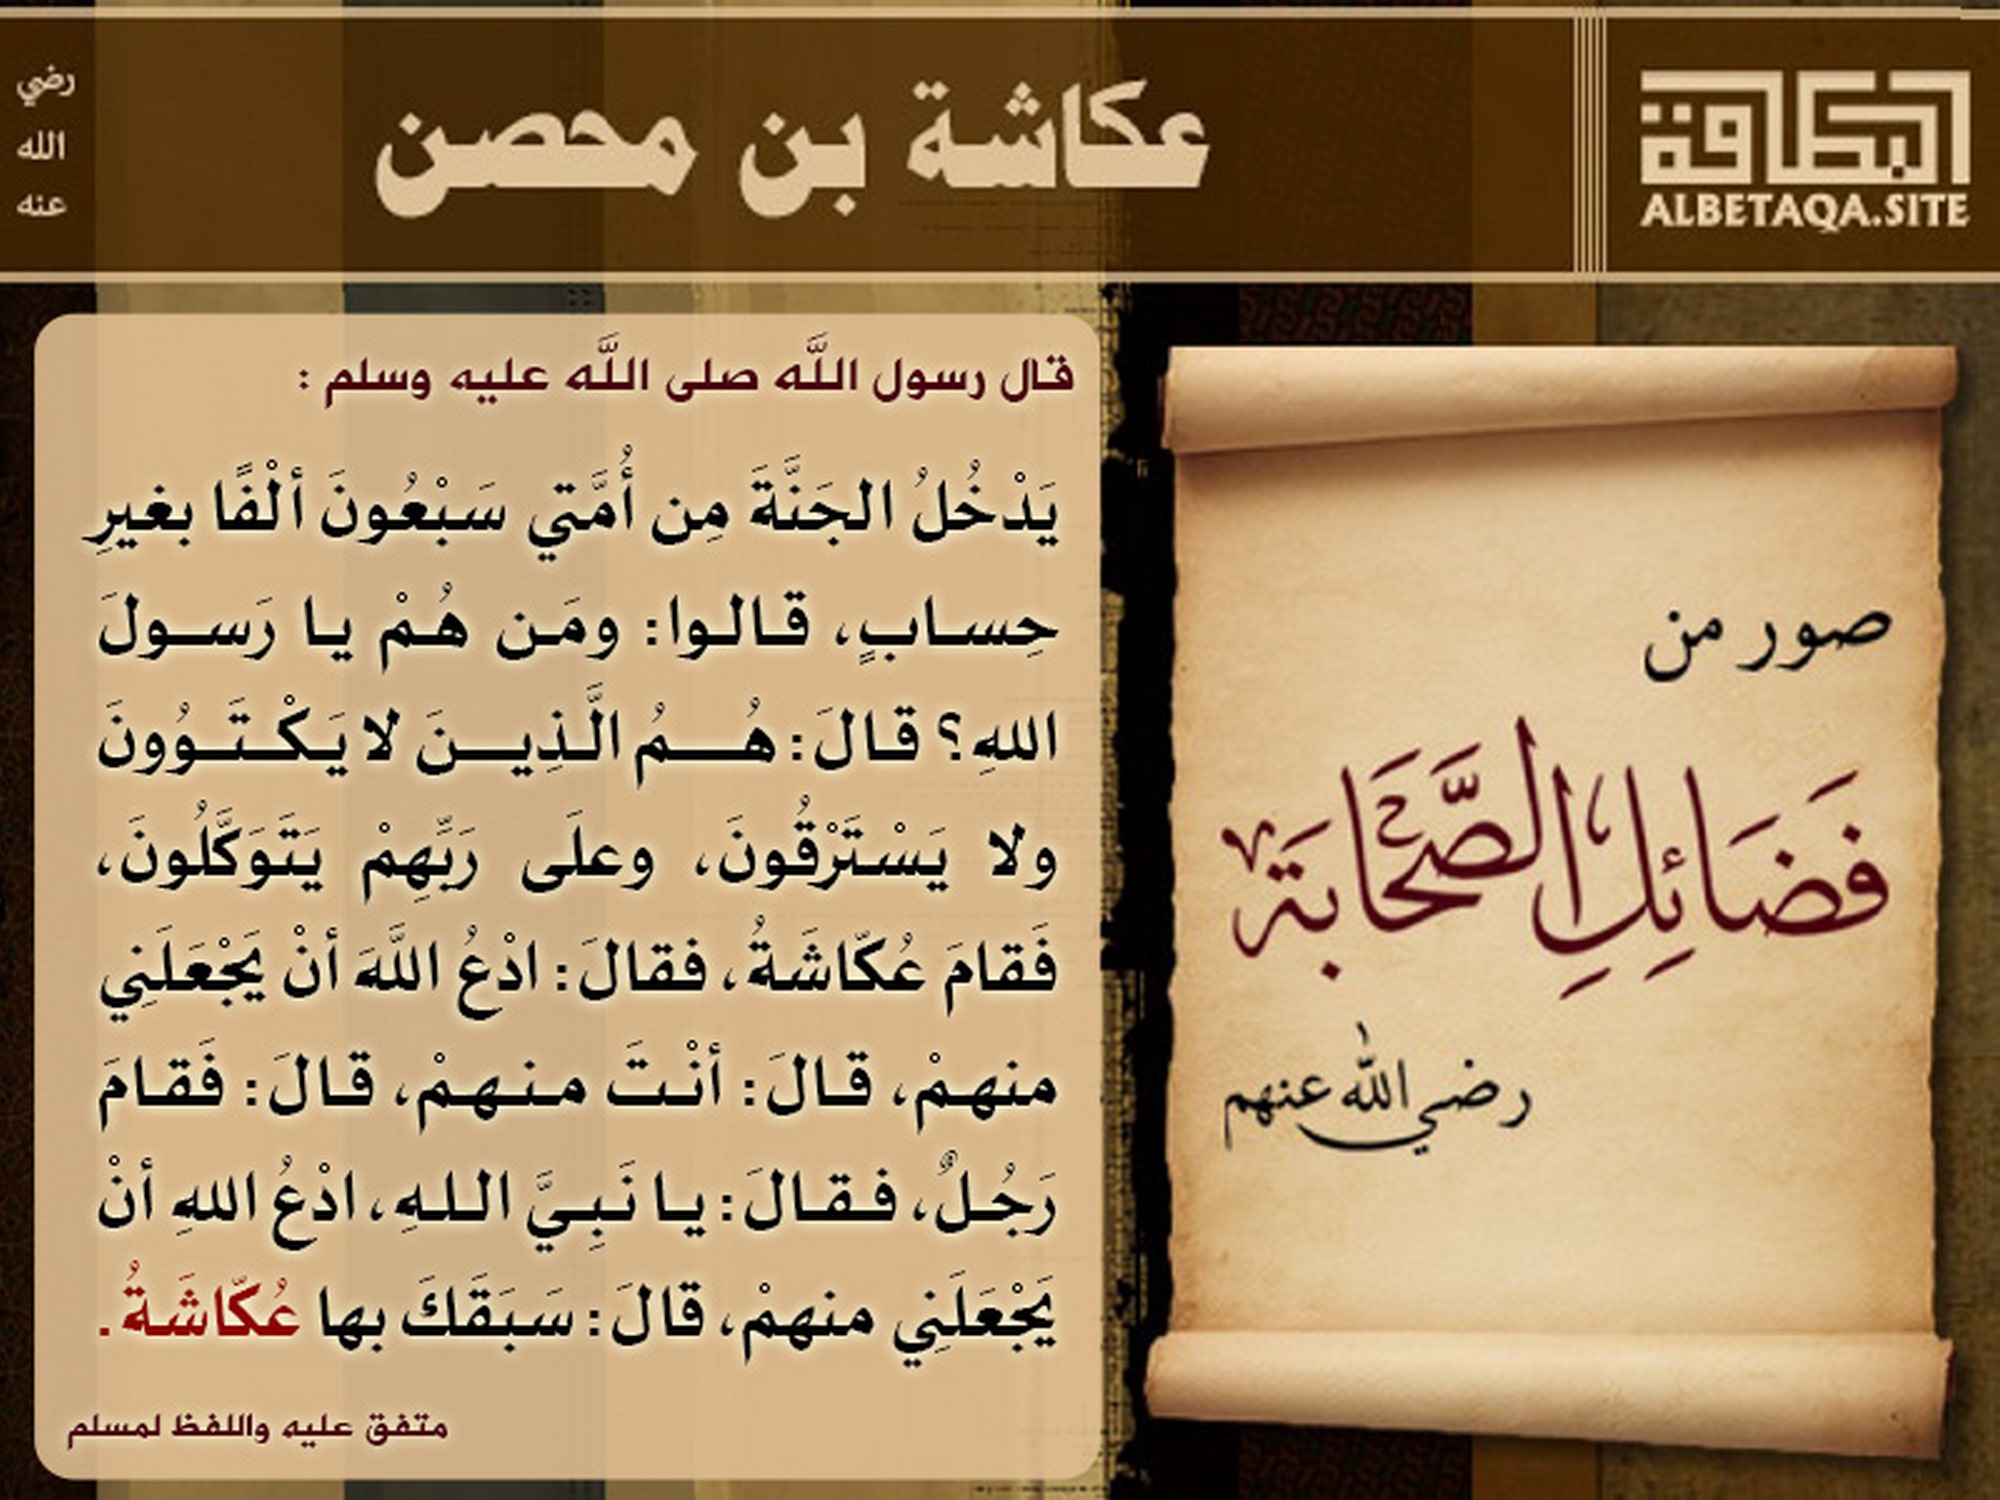 البطاقة
ALBETAQA.SITE
عكاشة بن محصن
رضي
الله
عنه
صور من
فَضَائِلِ الصَّحَابَةِ
رضي الله عنهم
قال رسول اللَّه صلى اللَّه عليه وسلم :
يَدْخُلُ الجَنَّةَ مِن أُمَّتي سَبْعُونَ ألْفًا بغيرِ
حِسابٍ، قالوا: ومَن هُمْ يا رَسولَ
اللهِ؟ قالَ: هُمُ الَّذِينَ لا يَكْتَوُونَ
ولا يَسْتَرْقُونَ، وعلَى رَبِّهِمْ يَتَوَكَّلُونَ،
فَقامَ عُكّاشَةُ، فقالَ: ادْعُ اللَّهَ أنْ يَجْعَلَنِي
منهمْ، قالَ: أنْتَ منهمْ، قالَ: فَقامَ
رَجُلٌ، فقالَ: يا نَبِيَّ اللهِ، ادْعُ اللهِ أنْ
يَجْعَلَنِي منهمْ، قالَ: سَبَقَكَ بها عُكّاشَةُ.
متفق عليه واللفظ لمسلم